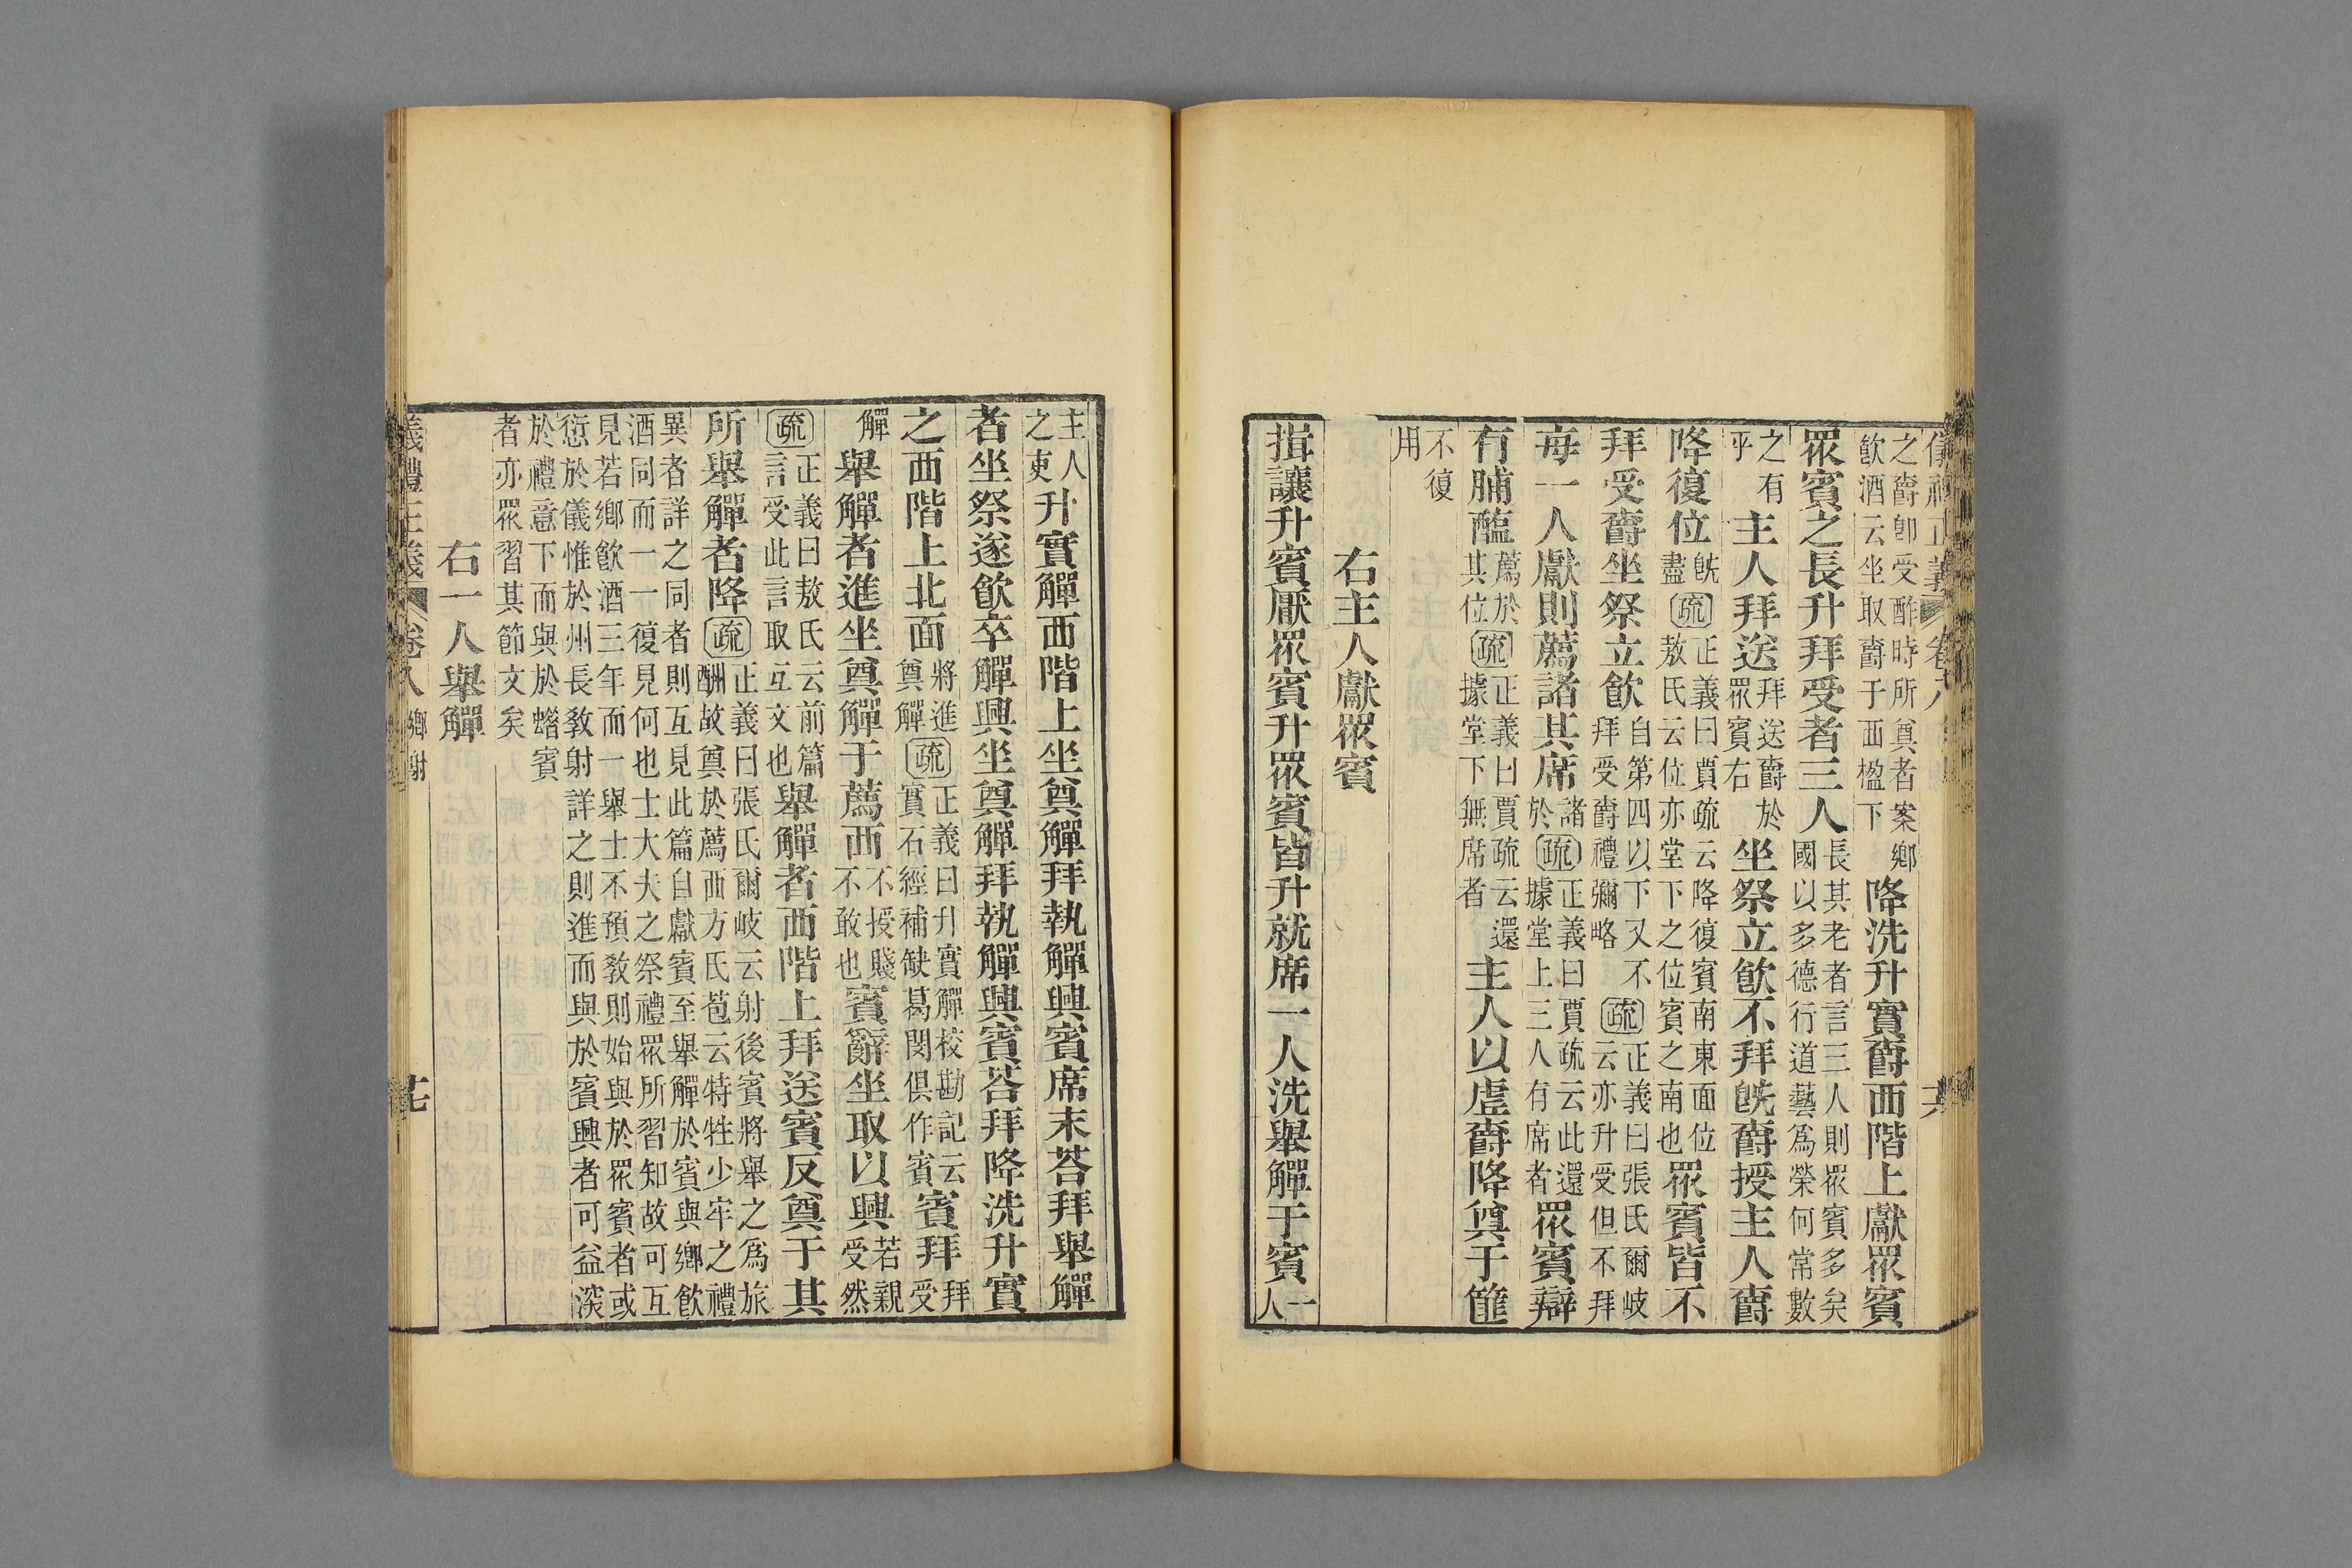 儀禮正義 卷八 十六
之爵卽受酢時所奠者案鄉
飮酒云坐取爵于西楹下
降洗升實爵西階上獻眾賓
眾賓之長升拜受者三人
長其老者言三人則眾賓多矣
國以多德行道藝爲榮何常數
之有
乎
主人拜送
拜送爵於
眾賓右
坐祭立飮不拜旣爵授主人爵
降復位
旣
盡
疏
正義曰賈疏云降復賓南東面位
敖氏云位亦堂下之位賓之南也
眾賓皆不
拜受爵坐祭立飮
自第四以下又不
拜受爵禮彌略
疏
正義曰張氏爾岐
云亦升受但不拜
每一人獻則薦諸其席
諸
於
疏
正義曰賈疏云此還
據堂上三人有席者
眾賓辯
有脯醢
薦於
其位
疏
正義曰賈疏云還
據堂下無席者
主人以虛爵降奠于篚
不復
用
右主人獻眾賓
揖讓升賓厭眾賓升眾賓皆升就席一人洗舉觶于賓
一
人
主人
之吏
升實觶西階上坐奠觶拜執觶興賓席末荅拜舉觶
者坐祭遂飮卒觶興坐奠觶拜執觶興賓荅拜降洗升實
之西階上北面
將進
奠觶
疏
正義曰升實觶校勘記云
實石經補缺葛閩俱作賓
賓拜
拜
受
觶
舉觶者進坐奠觶于薦西
不授賤
不敢也
賓辭坐取以興
若親
受然
疏
正義曰敖氏云前篇
言受此言取互文也
舉觶者西階上拜送賓反奠于其
所舉觶者降
疏
正義曰張氏爾岐云射後賓將舉之爲旅
酬故奠於薦西方氏苞云特牲少牢之禮
異者詳之同者則互見此篇自獻賓至舉觶於賓與鄉飮
酒同而一一復見何也士大夫之祭禮眾所習知故可互
見若鄉飮酒三年而一舉士不預敎則始與於眾賓者或
愆於儀惟於州長敎射詳之則進而與於賓興者可益深
於禮意下而與於蜡賓
者亦眾習其節文矣
右一人舉觶
義禮正義 卷八 鄉射 十七